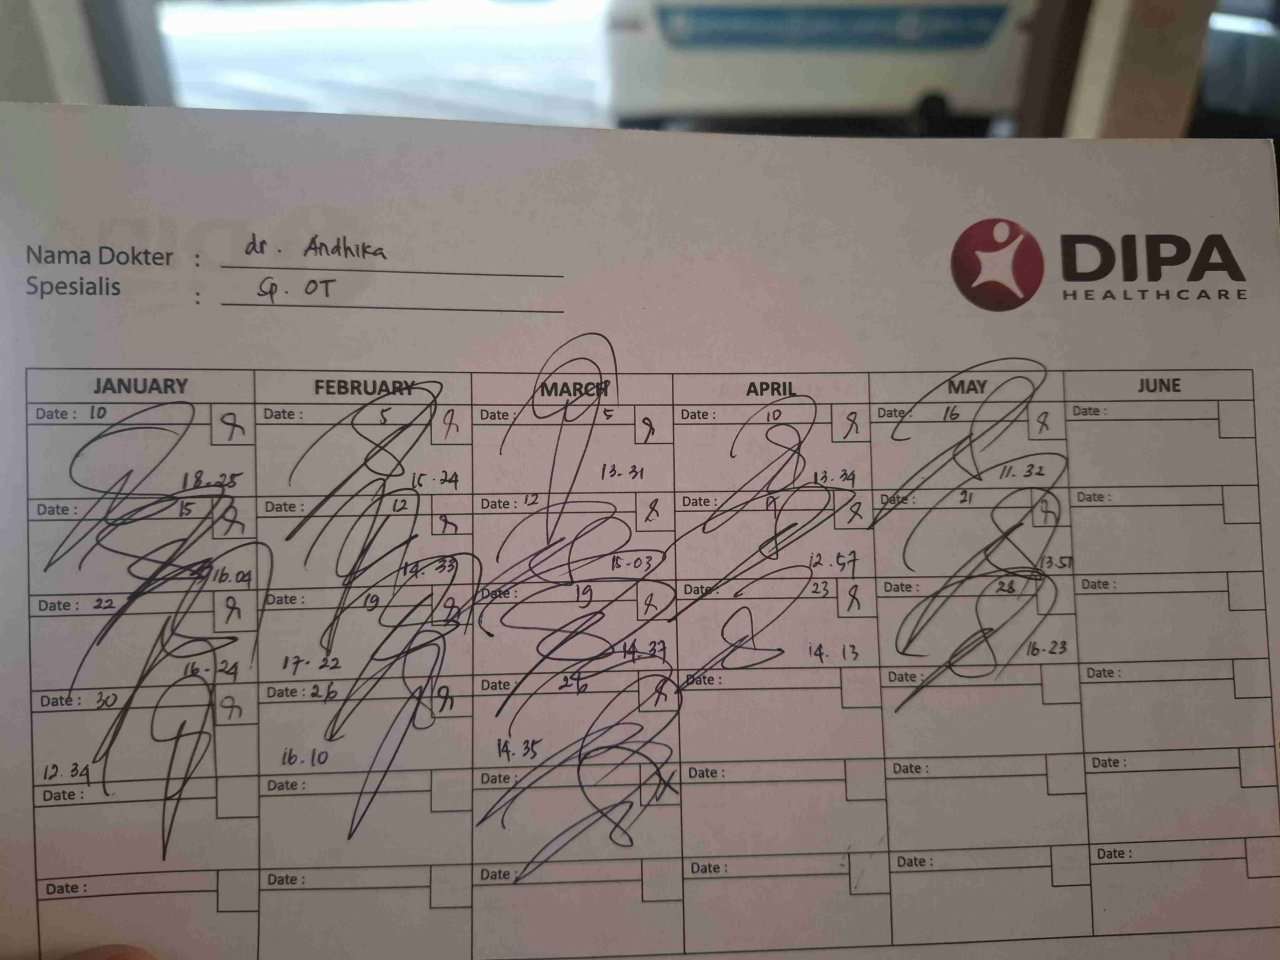 Nama Dokter : dr. Andhika
Spesialis : Sp. OT
DIPA
HEALTHCARE
JANUARY FEBRUARY MARCH APRIL MAY JUNE
Date : 10 Date : 5 Date : 5 Date : 10 Date : 16 Date :
18.25 15.24 13.31 13.34 11.32
Date : 15 Date : 12 Date : 12 Date : Date : 21 Date :
16.04 14.33 15.03 12.57 13.51
Date : 22 Date : 19 Date : 19 Date : 23 Date : 28 Date :
16.24 17.22 14.37 14.13 16.23
Date : 30 Date : 26 Date : 26 Date : Date : Date :
12.34 16.10 14.35
Date : Date : Date : Date : Date : Date :
Date : Date : Date : Date : Date : Date :